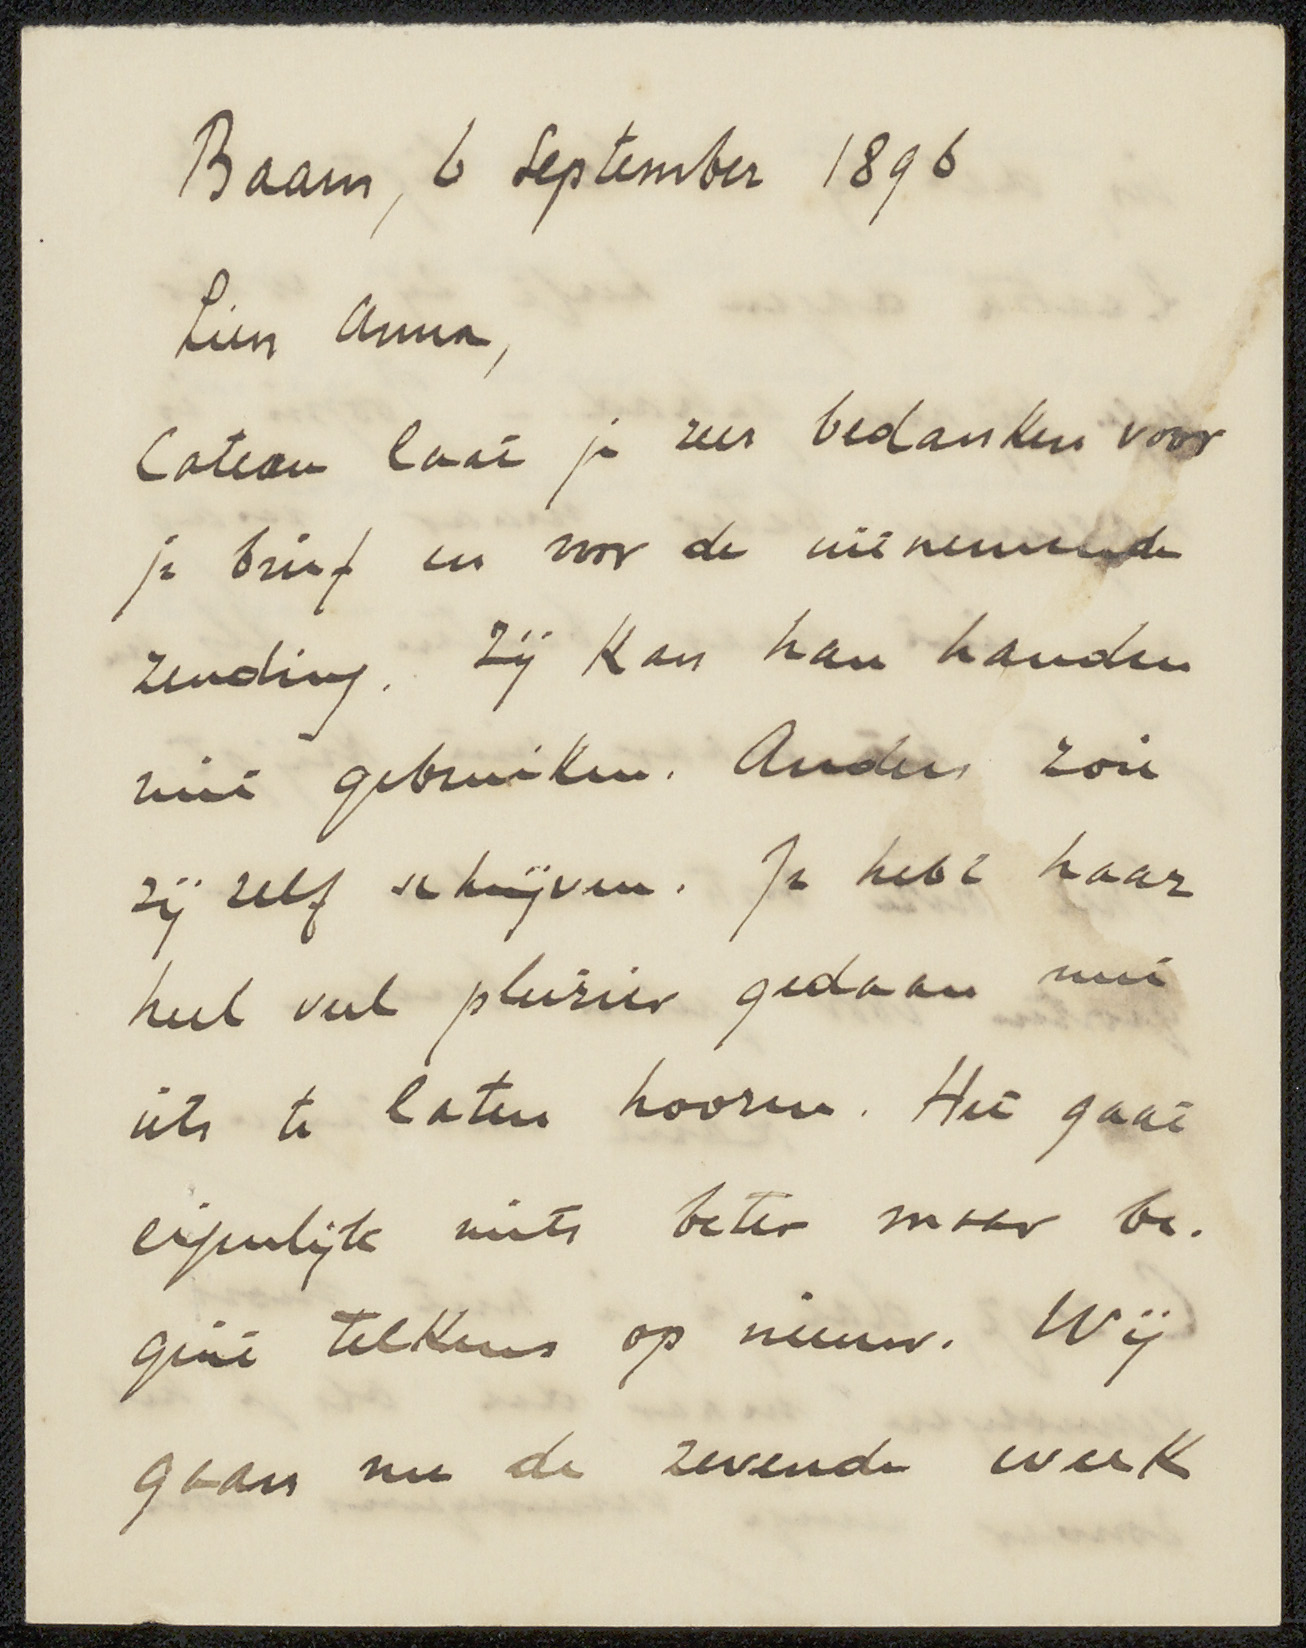 Baarn, 6 September 1896
Lieve Anna,
Cateau laat je zeer bedanken voor
je brief en voor de uitnemende
zending. Zij kan haar handen
niet gebruiken. Anders zou
zij zelf schrijven. Je hebt haar
heel veel pleizier gedaan met
iets te laten hooren. Het gaat
eigenlijk niets beter maar be-
gint telkens op nieuw. Wij
gaan nu de zevende week